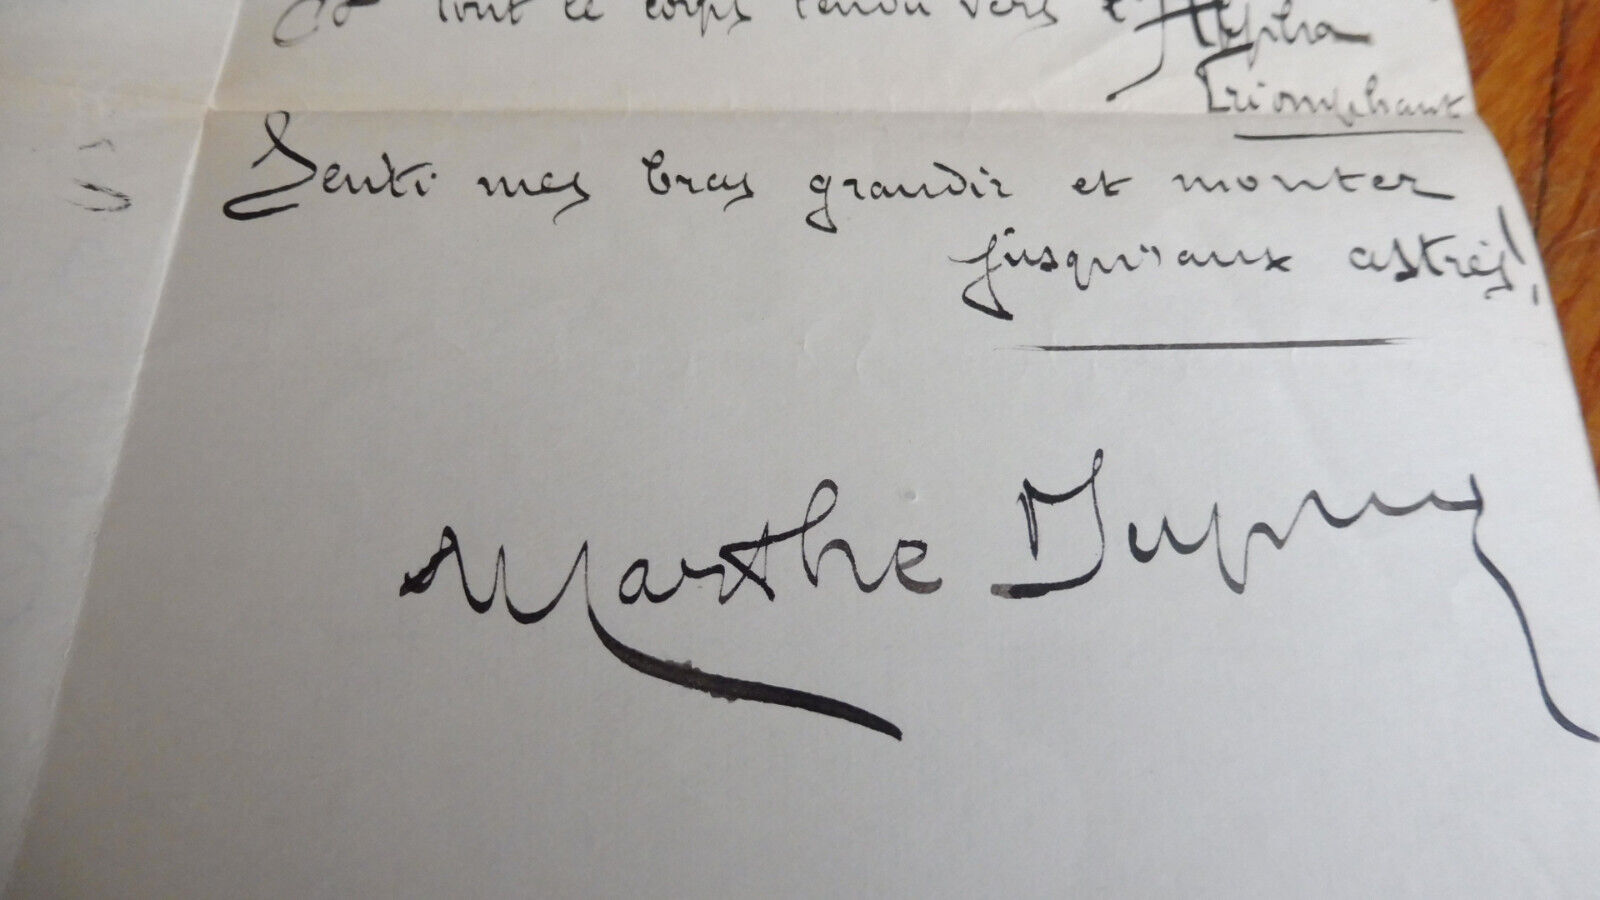 Et tout le corps tendu vers l'Alpha
Triomphant
Senti mes bras grandir et monter
jusqu'aux astres!
Marthe Dupuy